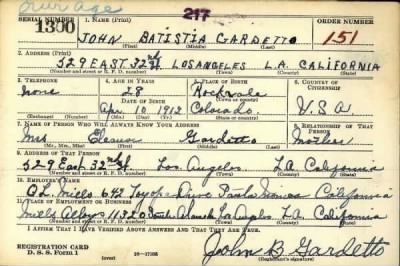 Over age
SERIAL NUMBER 1. NAME (Print) 217 ORDER NUMBER
1300 JOHN BATISTIA GARDETTO 151
(First) (Middle) (Last)
2. ADDRESS (Print)
529 EAST 32nd St LOS ANGELES L.A. CALIFORNIA
(Number and street or R. F. D. number) (Town) (County) (State)
3. TELEPHONE 4. AGE IN YEARS 5. PLACE OF BIRTH 6. COUNTRY OF CITIZENSHIP
None 28 Rockvale
DATE OF BIRTH (Town or county)
Apr. 10, 1912 Colorado U.S.A
(Exchange) (Number) (Mo.) (Day) (Yr.) (State or country)
7. NAME OF PERSON WHO WILL ALWAYS KNOW YOUR ADDRESS 8. RELATIONSHIP OF THAT PERSON
Mrs Eleanor Gardetto Mother
(Mr., Mrs., Miss) (First) (Middle) (Last)
9. ADDRESS OF THAT PERSON
529 East 32nd St Los Angeles L.A. California
(Number and street or R. F. D. number) (Town) (County) (State)
10. EMPLOYER'S NAME
642 California
11. PLACE OF EMPLOYMENT OR BUSINESS
Mills Alloys 1132 South Los Angeles L.A. California
(Number and street or R. F. D. number) (Town) (County) (State)
I AFFIRM THAT I HAVE VERIFIED ABOVE ANSWERS AND THAT THEY ARE TRUE.
REGISTRATION CARD
D. S. S. Form 1 (over) John B Gardetto
(Registrant's signature)